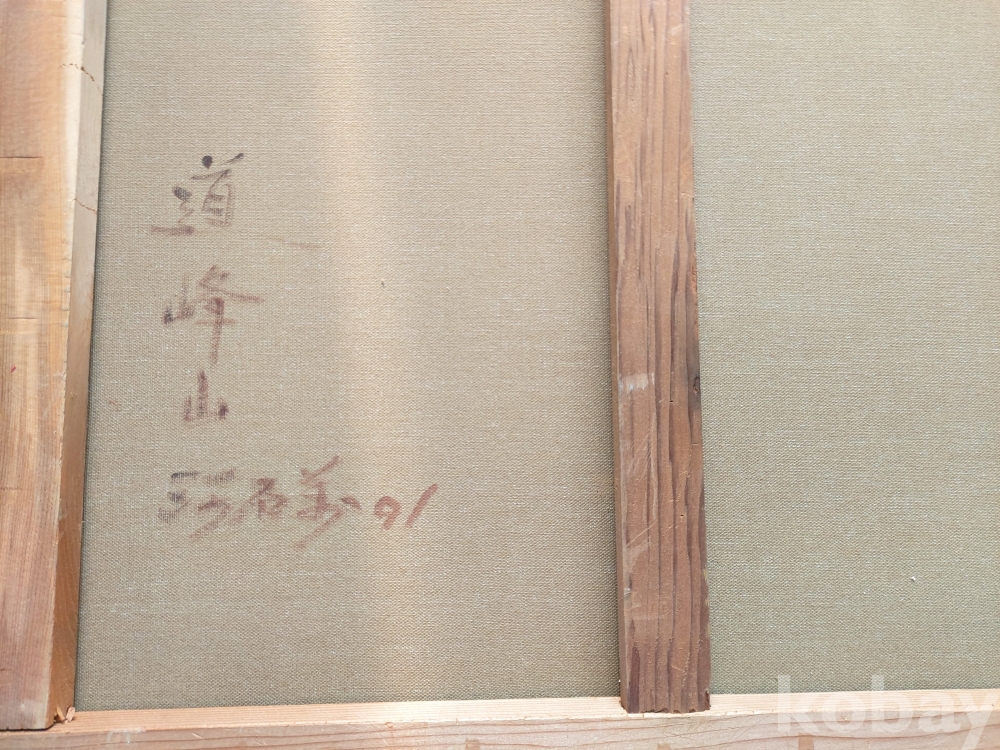 道
峰
山
91
kobay